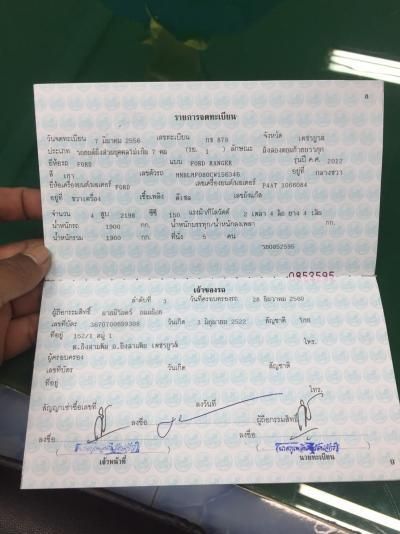 8
รายการจดทะเบียน
วันจดทะเบียน 7 มีนาคม 2556 เลขทะเบียน กช 879 จังหวัด เพชรบูรณ์
ประเภท รถยนต์นั่งส่วนบุคคลไม่เกิน 7 คน (รย. 1 ) ลักษณะ นั่งสองตอนท้ายบรรทุก
ยี่ห้อรถ FORD แบบ FORD RANGER รุ่นปี ค.ศ. 2012
สี เทา เลขตัวรถ MNBLMFF080CW156346 อยู่ที่ กลางขวา
ยี่ห้อเครื่องยนต์/มอเตอร์ FORD เลขเครื่องยนต์/มอเตอร์ P4AT 1066084
อยู่ที่ ขวาเครื่อง เชื้อเพลิง ดีเซล เลขถังแก๊ส
จำนวน 4 สูบ 2198 ซีซี 150 แรงม้า/กิโลวัตต์ 2 เพลา 4 ล้อ ยาง 4 เส้น
น้ำหนักรถ 1900 กก. น้ำหนักบรรทุก/น้ำหนักลงเพลา กก.
น้ำหนักรวม 1900 กก. ที่นั่ง 5 คน
0852595
0853595
เจ้าของรถ
ลำดับที่ 3 วันที่ครอบครองรถ 28 ธันวาคม 2560
ผู้ถือกรรมสิทธิ์
เลขที่บัตร 3670700699308 วันเกิด 3 มิถุนายน 2522 สัญชาติ ไทย
ที่อยู่ 152/1 หมู่ 1 โทร.
ต.บึงสามพัน อ.บึงสามพัน เพชรบูรณ์
ผู้ครอบครอง
เลขที่บัตร วันเกิด สัญชาติ
ที่อยู่ โทร.
สัญญาเช่าซื้อเลขที่ ลงวันที่
ลงชื่อ ผู้ถือกรรมสิทธิ์
ลงชื่อ ลงชื่อ
เจ้าหน้าที่ นายทะเบียน
9